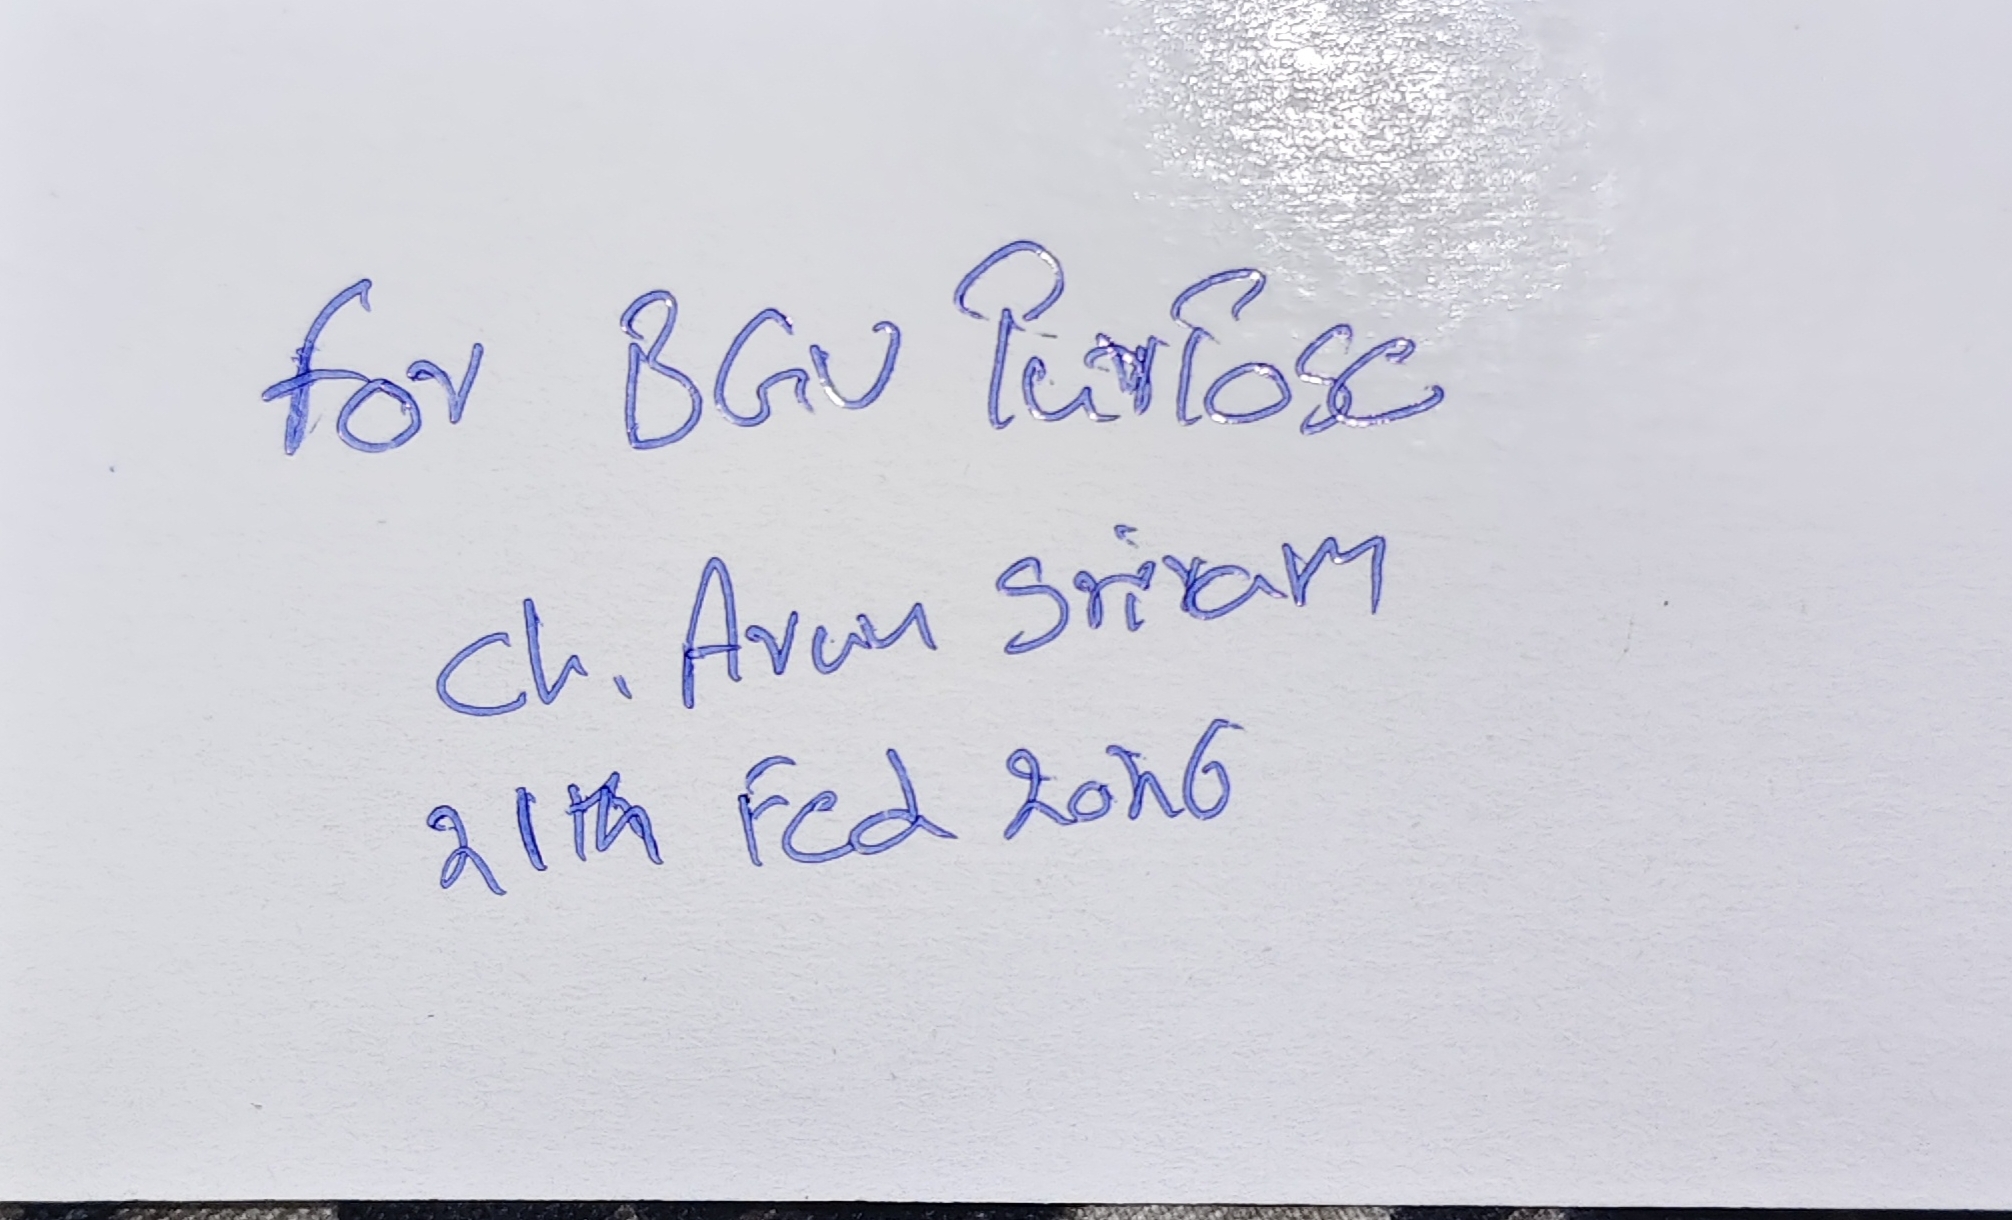 For BGV Purpose
Ch. Arun Sriram
21th Fed 2026